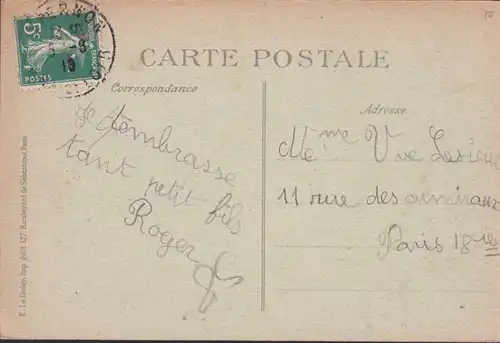 VERNON
5c
POSTES
CARTE POSTALE
Correspondance
Adresse
Je t'embrasse
tant petit fils
Roger
Mé me Vve Lesieur
11 rue des animaux
Paris 18
E. Le Deley, Imp.-édit. 127, Boulevard de Sébastopol, Paris